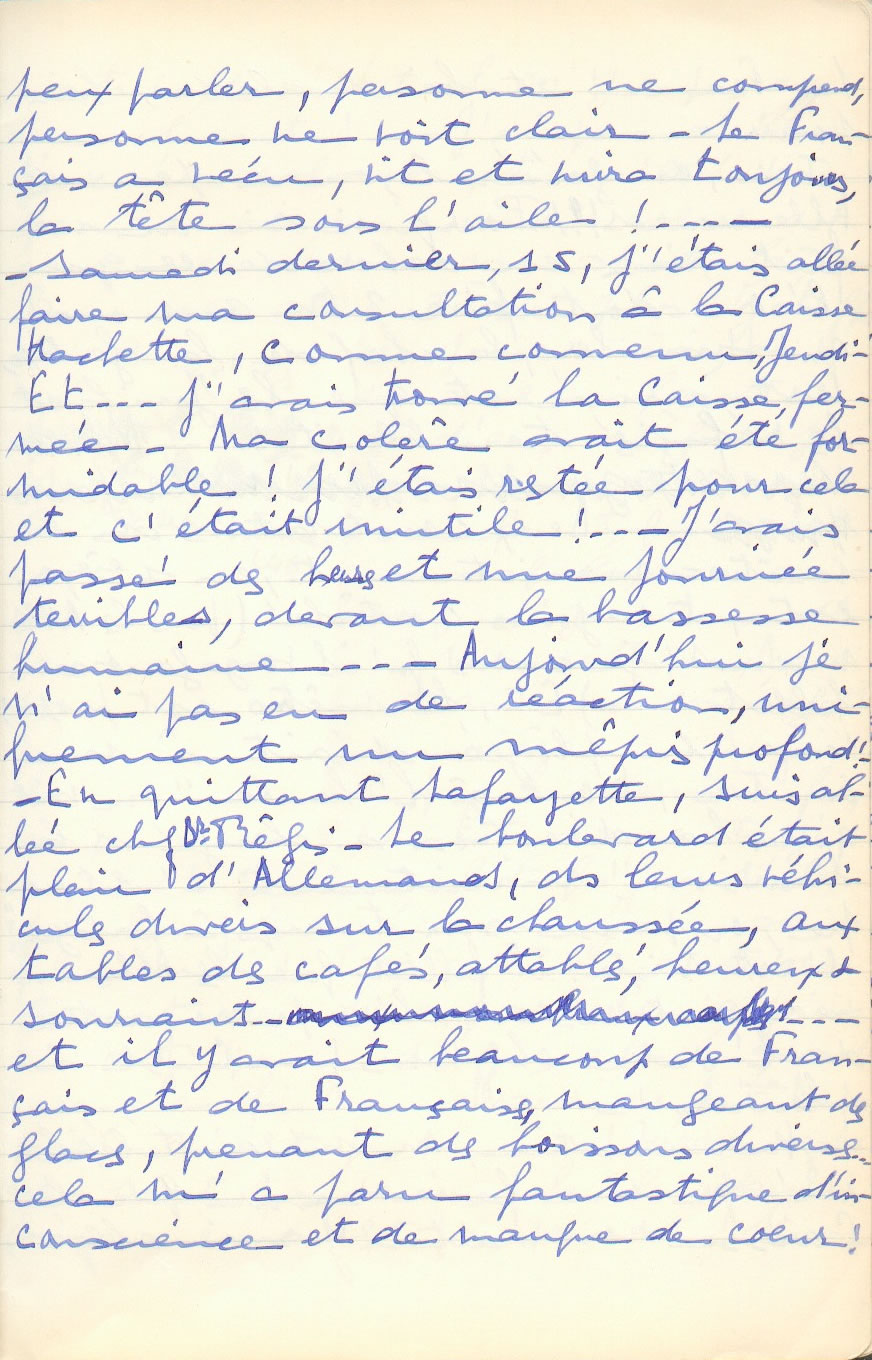 peux parler, personne ne comprend,
personne ne voit clair - Le Fran-
çais a vécu, vit et vivra toujours,
la tête sous l'aile ! ----
- Samedi dernier, 15, j'étais allée
faire ma consultation à la Caisse
Hachette, comme convenu, Jeudi -
Et --- j'avais trouvé la Caisse fer-
mée - Ma colère avait été for-
midable ! J'étais restée pour cela
et c'était inutile ! --- J'avais
passé des heures et une journée
terribles, devant la bassesse
humaine --- Aujourd'hui je
n'ai pas eu de réaction, uni-
quement un mépris profond ! -
- En quittant Lafayette, suis al-
lée chez Dr Régis - Le boulevard était
plein d'Allemands, ds leurs véhi-
cules divers sur la chaussée, aux
tables des cafés, attablés, heureux &
souriants --- ---
et il y avait beaucoup de Fran-
çais et de Françaises, mangeant des
glaces, prenant des boissons diverses --
cela m'a paru fantastique d'in-
conscience et de manque de coeur !